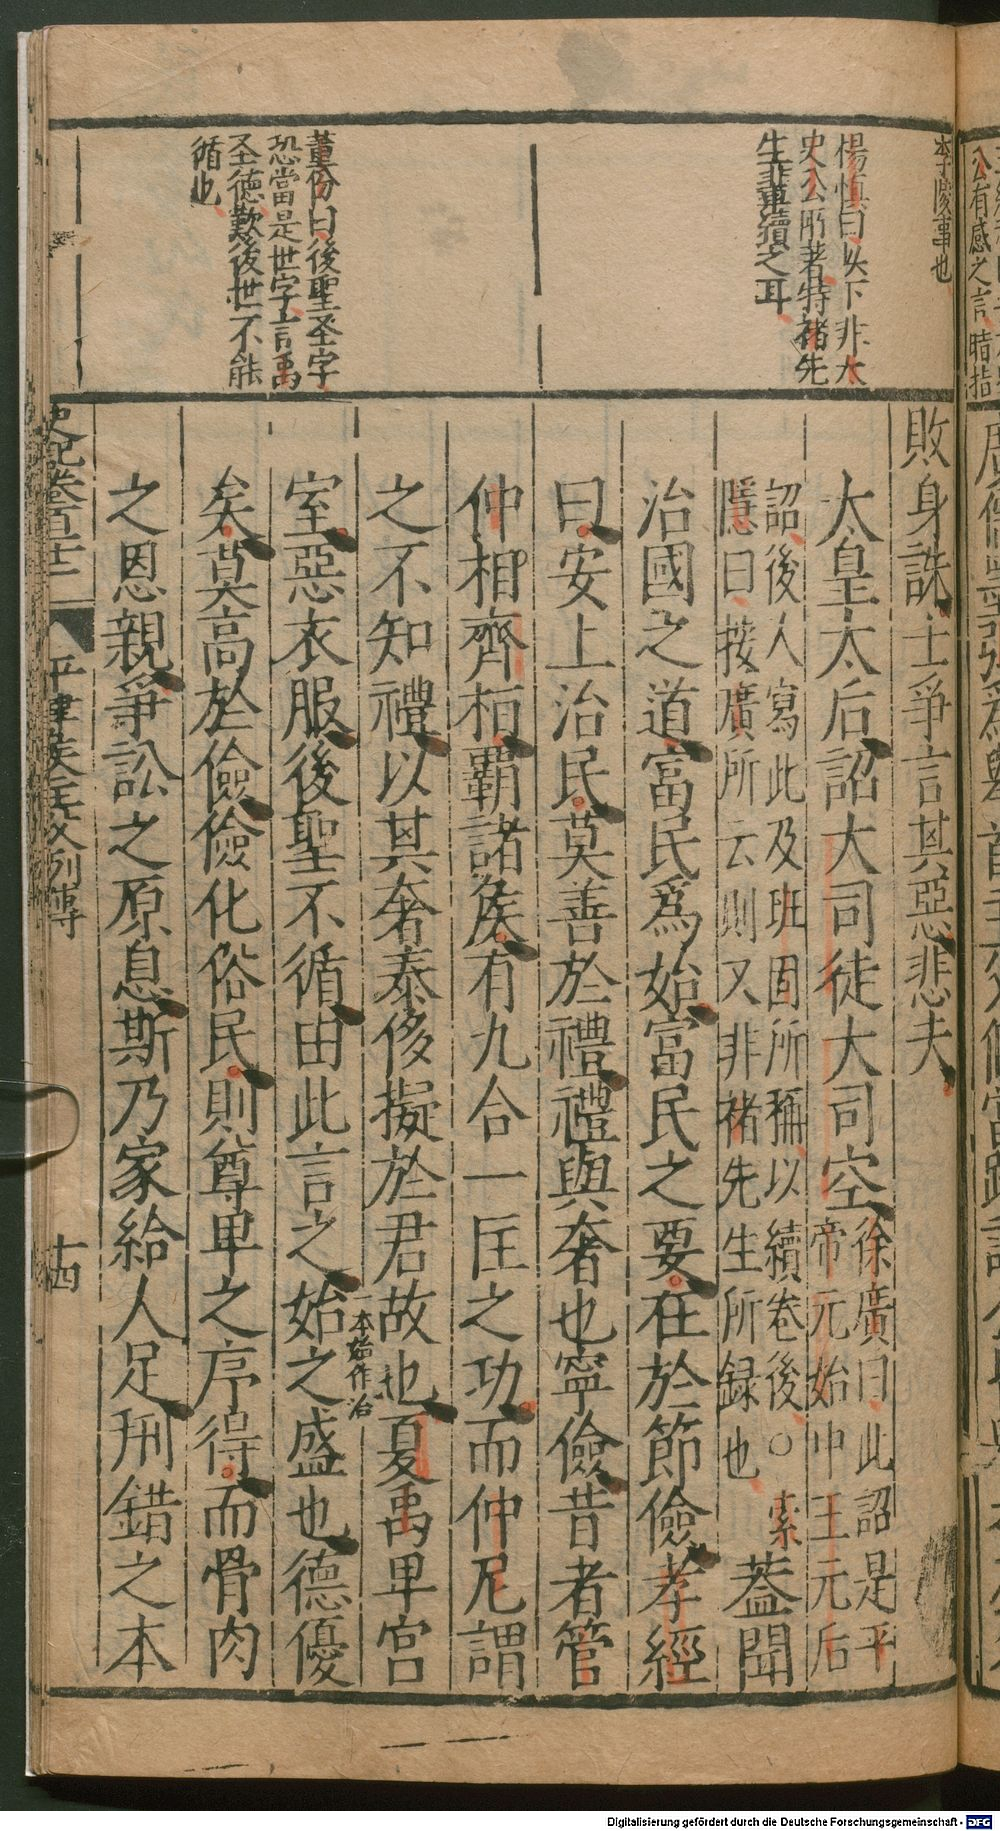 李陵事也
楊慎曰以下非太
史公所著特褚先
生輩續之耳
董份曰後聖圣字
恐當是世字言禹
圣德歎後世不能
循也
敗身誅士爭言其惡悲夫
太皇太后詔大司徒大司空徐廣曰此詔是平帝元始中王元后
詔後人寫此及班固所稱以續卷後○索隱曰按廣所云則又非褚先生所録也蓋聞
治國之道富民爲始富民之要在於節儉孝經
曰安上治民莫善於禮禮與奢也寧儉昔者管
仲相齊桓霸諸侯有九合一匡之功而仲尼謂
之不知禮以其奢泰侈擬於君故也夏禹卑宮
室惡衣服後聖不循由此言之始一本始作治之盛也德優
矣莫高於儉儉化俗民則尊卑之序得而骨肉
之恩親爭訟之原息斯乃家給人足刑錯之本
史記卷百十二
平津侯主父列傳
十四
公有感之言暗指
Digitalisierung gefördert durch die Deutsche Forschungsgemeinschaft - DFG